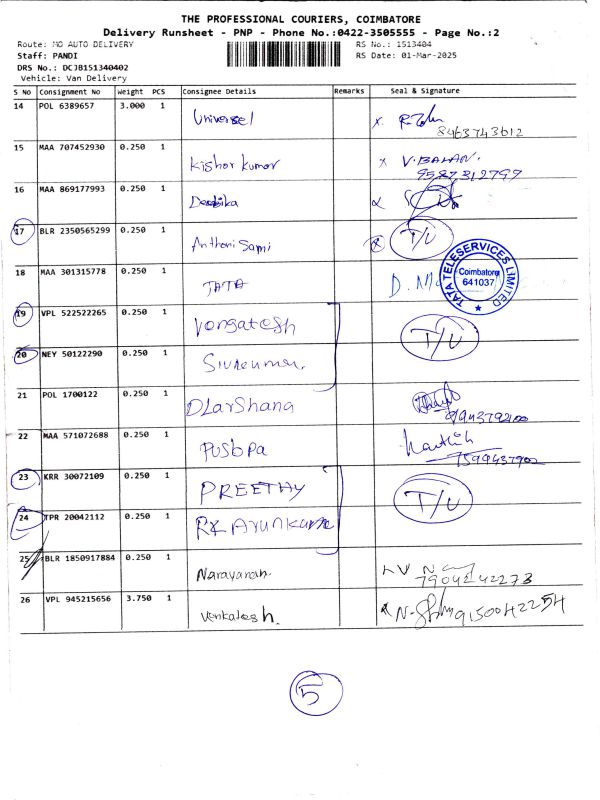 THE PROFESSIONAL COURIERS, COIMBATORE
Delivery Runsheet - PNP - Phone No.:0422-3505555 - Page No.:2
Route: MO AUTO DELIVERY RS No.: 1513404
Staff: PANDI RS Date: 01-Mar-2025
DRS No.: DCJB151340402
Vehicle: Van Delivery
S No Consignment No Weight PCS Consignee Details Remarks Seal & Signature
14 POL 6389657 3.000 1 Universel
8463743612
15 MAA 707452930 0.250 1 Kishor kumar V. BALAN.
9587312797
16 MAA 869177993 0.250 1
17 BLR 2350565299 0.250 1 Anthoni Sami T/U
18 MAA 301315778 0.250 1 TATA
TATA TELESERVICES LIMITED
Coimbatore
641037
19 VPL 522522265 0.250 1 Vongatesh T/U
20 NEY 50122290 0.250 1
21 POL 1700122 0.250 1 DLarShana
22 MAA 571072688 0.250 1 PUSbPa Karthik
23 KRR 30072109 0.250 1 PREETHY T/U
24 TPR 20042112 0.250 1 Arunkumar
25 BLR 1850917884 0.250 1 Narayanan
7904242273
26 VPL 945215656 3.750 1 Venkatesh. 9150042254
5